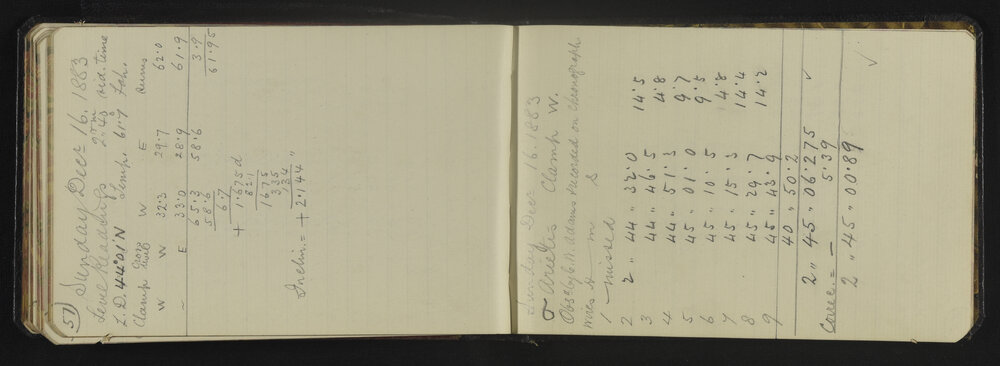 57
Sunday Decr 16. 1883
Level Readings 2 h 43 m sid. time
Z.D. 44°01'N Temp. 61°.7 Fah.
Clamp Cross level W E Sums
W W 32.3 29.7 62.0
- E 33.0 28.9 61.9
65.3 58.6 3.9
58.6 61.95
6.7
+ 1.675 d
821
1675
335
134
Inclin. = + 2.144 "
Sunday Decr 16. 1883
σ Arietis Clamp W.
Obs. by C.A. Adams recorded on chronograph
Wires h m s
1 missed
2 2 " 44 " 32.0 14.5
3 44 " 46.5 4.8
4 44 " 51.3 9.7
5 45 " 01.0 9.5
6 45 " 10.5 4.8
7 45 " 15.3 14.4
8 45 " 29.7 14.2
9 45 " 43.9
40 " 50.2
2 " 45 " 06.275 ✓
Correc. = - 5.39
2 " 45 " 00.89 ✓